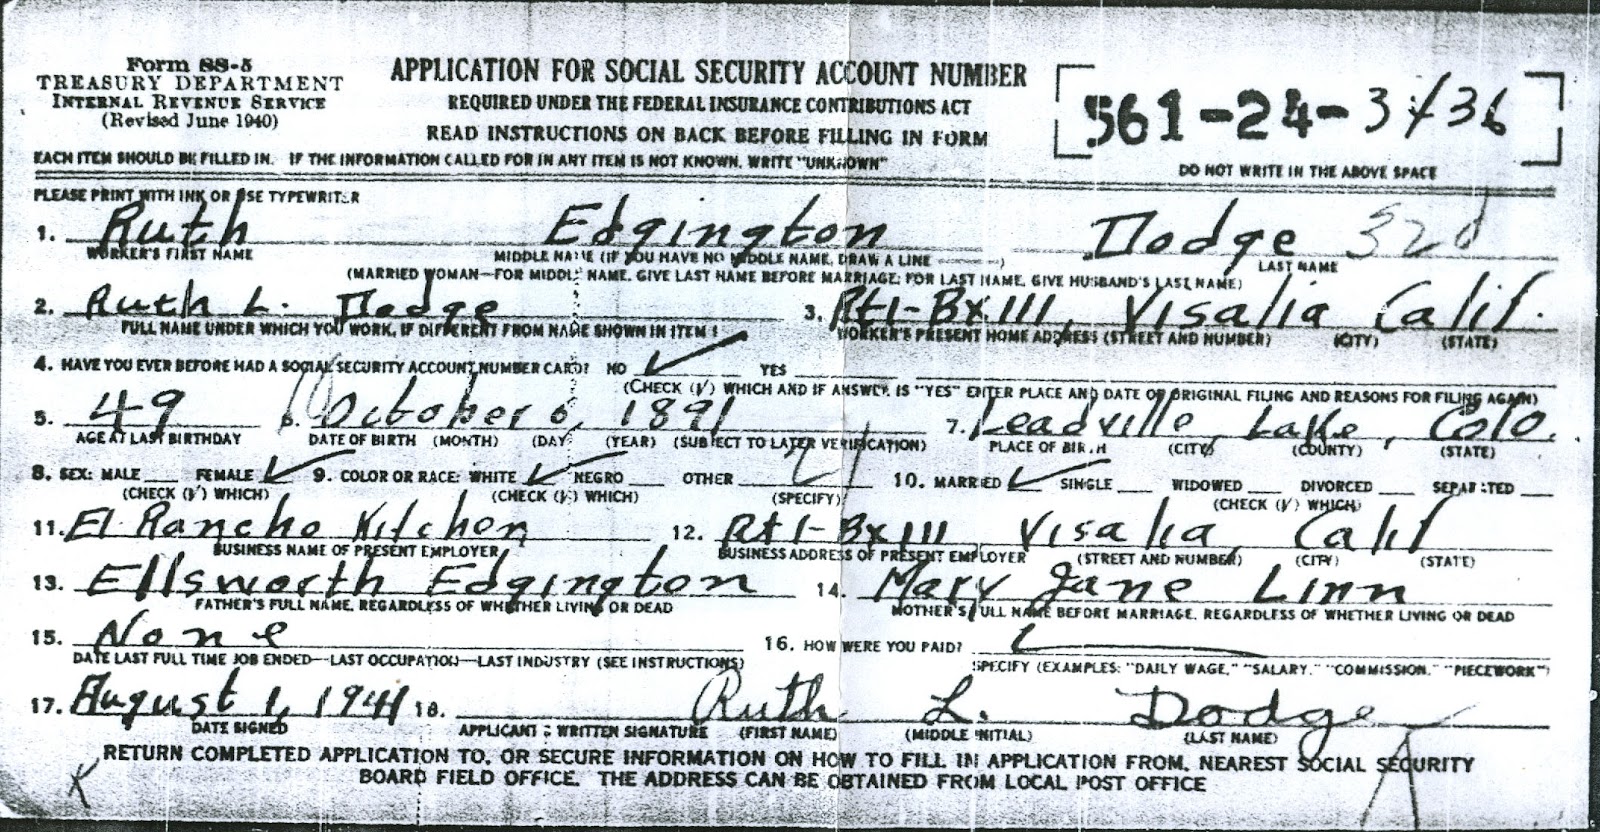 Form SS-5
TREASURY DEPARTMENT
INTERNAL REVENUE SERVICE
(Revised June 1940)
APPLICATION FOR SOCIAL SECURITY ACCOUNT NUMBER
REQUIRED UNDER THE FEDERAL INSURANCE CONTRIBUTIONS ACT
READ INSTRUCTIONS ON BACK BEFORE FILLING IN FORM
561-24-3
DO NOT WRITE IN THE ABOVE SPACE
EACH ITEM SHOULD BE FILLED IN. IF THE INFORMATION CALLED FOR IN ANY ITEM IS NOT KNOWN, WRITE "UNKNOWN"
PLEASE PRINT WITH INK OR USE TYPEWRITER
1. Ruth Edgington Dodge
WORKER'S FIRST NAME MIDDLE NAME (IF YOU HAVE NO MIDDLE NAME, DRAW A LINE ——) LAST NAME
(MARRIED WOMAN—FOR MIDDLE NAME, GIVE LAST NAME BEFORE MARRIAGE; FOR LAST NAME, GIVE HUSBAND'S LAST NAME)
2. Ruth L. Dodge 3. Rt1-Bx111, Visalia Calif.
FULL NAME UNDER WHICH YOU WORK, IF DIFFERENT FROM NAME SHOWN IN ITEM 1 WORKER'S PRESENT HOME ADDRESS (STREET AND NUMBER) (CITY) (STATE)
4. HAVE YOU EVER BEFORE HAD A SOCIAL SECURITY ACCOUNT NUMBER CARD? NO ✓ YES
(CHECK (✓) WHICH AND IF ANSWER IS "YES" ENTER PLACE AND DATE OF ORIGINAL FILING AND REASONS FOR FILING AGAIN)
5. 49 6. October 6, 1891 7. Leadville, Lake, Colo.
AGE AT LAST BIRTHDAY DATE OF BIRTH (MONTH) (DAY) (YEAR) (SUBJECT TO LATER VERIFICATION) PLACE OF BIRTH (CITY) (COUNTY) (STATE)
8. SEX: MALE FEMALE ✓ 9. COLOR OR RACE: WHITE ✓ NEGRO OTHER 10. MARRIED ✓ SINGLE WIDOWED DIVORCED SEPARATED
(CHECK (✓) WHICH) (CHECK (✓) WHICH) (SPECIFY) (CHECK (✓) WHICH)
11. El Rancho Kitchen 12. Rt1-Bx111, Visalia, Calif
BUSINESS NAME OF PRESENT EMPLOYER BUSINESS ADDRESS OF PRESENT EMPLOYER (STREET AND NUMBER) (CITY) (STATE)
13. Ellsworth Edgington 14. Mary Jane Linn
FATHER'S FULL NAME, REGARDLESS OF WHETHER LIVING OR DEAD MOTHER'S FULL NAME BEFORE MARRIAGE, REGARDLESS OF WHETHER LIVING OR DEAD
15. None 16. HOW WERE YOU PAID?
DATE LAST FULL TIME JOB ENDED—LAST OCCUPATION—LAST INDUSTRY (SEE INSTRUCTIONS) SPECIFY (EXAMPLES: "DAILY WAGE," "SALARY," "COMMISSION," "PIECEWORK")
17. August 1, 1941 18. Ruth L. Dodge
DATE SIGNED APPLICANT'S WRITTEN SIGNATURE (FIRST NAME) (MIDDLE INITIAL) (LAST NAME)
RETURN COMPLETED APPLICATION TO, OR SECURE INFORMATION ON HOW TO FILL IN APPLICATION FROM, NEAREST SOCIAL SECURITY
BOARD FIELD OFFICE. THE ADDRESS CAN BE OBTAINED FROM LOCAL POST OFFICE
K